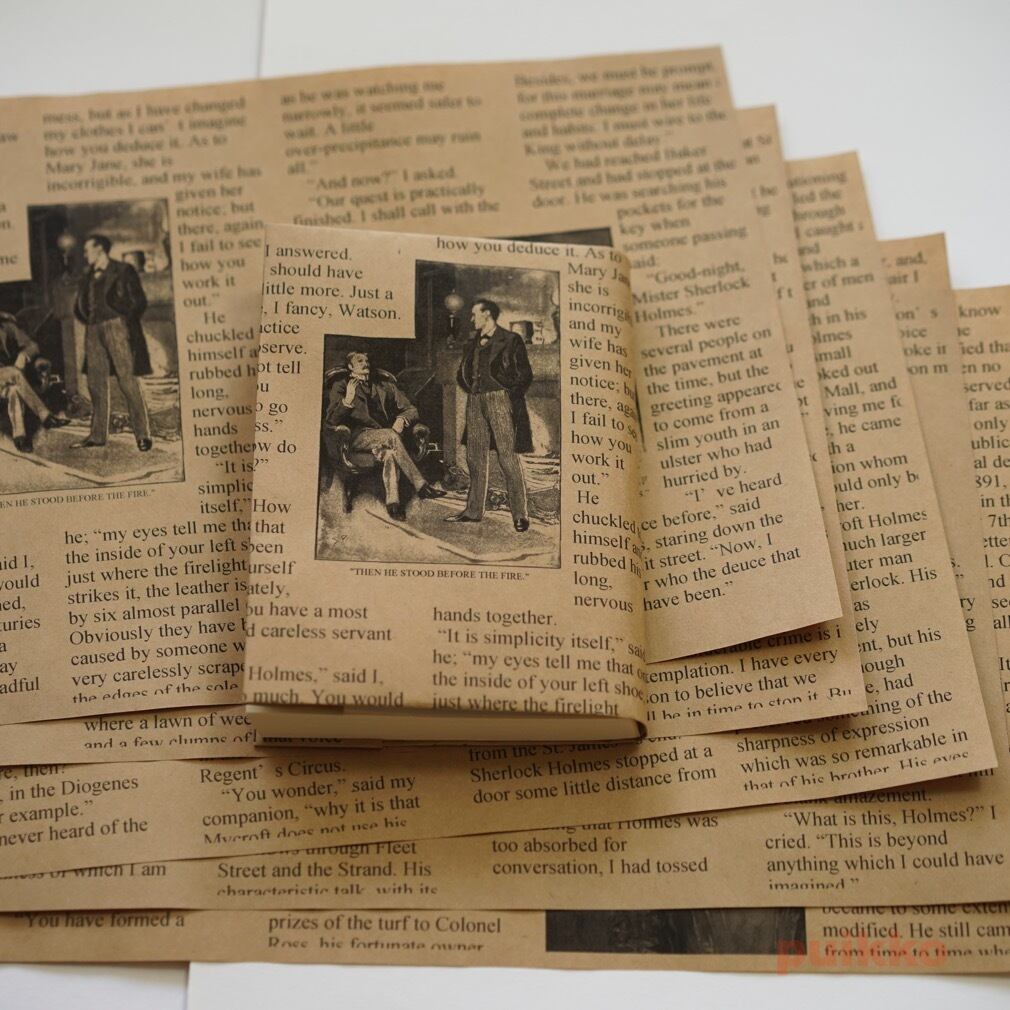 mess, but as I have changed
my clothes I can't imagine
how you deduce it. As to
Mary Jane, she is
incorrigible, and my wife has
given her
notice; but
there, again
I fail to see
how you
work it
out."
He
chuckled
himself
rubbed h
long,
nervous
hands
together
"It is
simplic
itself,"
EN HE STOOD BEFORE THE FIRE."
he; "my eyes tell me tha
the inside of your left s
just where the firelight
strikes it, the leather is
by six almost parallel
Obviously they have
caused by someone w
very carelessly scrape
the edges of the sole
as he was watching me
narrowly, it seemed safer to
wait. A little
over-precipitance may ruin
all."
"And now?" I asked.
"Our quest is practically
finished. I shall call with the
Besides, we must be prompt,
for this marriage may mean
complete change in her life
and habits. I must wire to the
King without delay."
We had reached Baker
Street and had stopped at the
door. He was searching his
pockets for the
key when
someone passing
said:
"Good-night,
Mister Sherlock
Holmes."
There were
several people on
the pavement at
the time, but the
greeting appeared
to come from a
slim youth in an
ulster who had
hurried by.
"I' ve heard
ce before," said
, staring down the
it street. "Now, I
r who the deuce that
have been."
I answered.
should have
little more. Just a
, I fancy, Watson.
actice
serve.
ot tell
u
o go
ss."
w do
?"
How
that
been
urself
ately,
ou have a most
d careless servant
Holmes," said I,
much. You would
how you deduce it. As to
Mary Ja
she is
incorrigi
and my
wife has
given her
notice; bu
there, aga
I fail to se
how you
work it
out."
He
chuckled
himself a
rubbed his
long,
nervous
"THEN HE STOOD BEFORE THE FIRE."
hands together.
"It is simplicity itself," sai
he; "my eyes tell me that o
the inside of your left shoe
just where the firelight
aid I,
would
ned,
turies
a
ay
adful
where a lawn of wee
and a few clumps of
that voice
templation. I have every
on to believe that we
ll be in time to stop it. Bu
, in the Diogenes
r example."
never heard of the
Regent' s Circus.
"You wonder," said my
companion, "why it is that
Mycroft does not use his
from the St. James
Sherlock Holmes stopped at a
door some little distance from
something of the
sharpness of expression
which was so remarkable in
that of his brother. His eyes
ness of which I am
through Fleet
Street and the Strand. His
characteristic talk, with its
that Holmes was
too absorbed for
conversation, I had tossed
amazement.
"What is this, Holmes?" I
cried. "This is beyond
anything which I could have
imagined."
"You have formed a
prizes of the turf to Colonel
Ross, his fortunate owner
became to some exten
modified. He still cam
from time to time whe
puikko